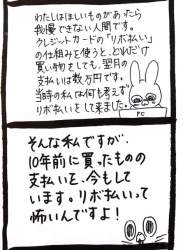 わたしはほしいものがあったら
我慢できない人間です。
クレジットカードの「リボ払い」
の仕組みを使うと、どれだけ
買い物をしても、翌月の
支払いは数万円です。
当時の私は何も考えず
リボ払いをして来ました。
PC
そんな私ですが、
10年前に買ったものの
支払いを、今もして
います。リボ払いって
怖いんですよ!